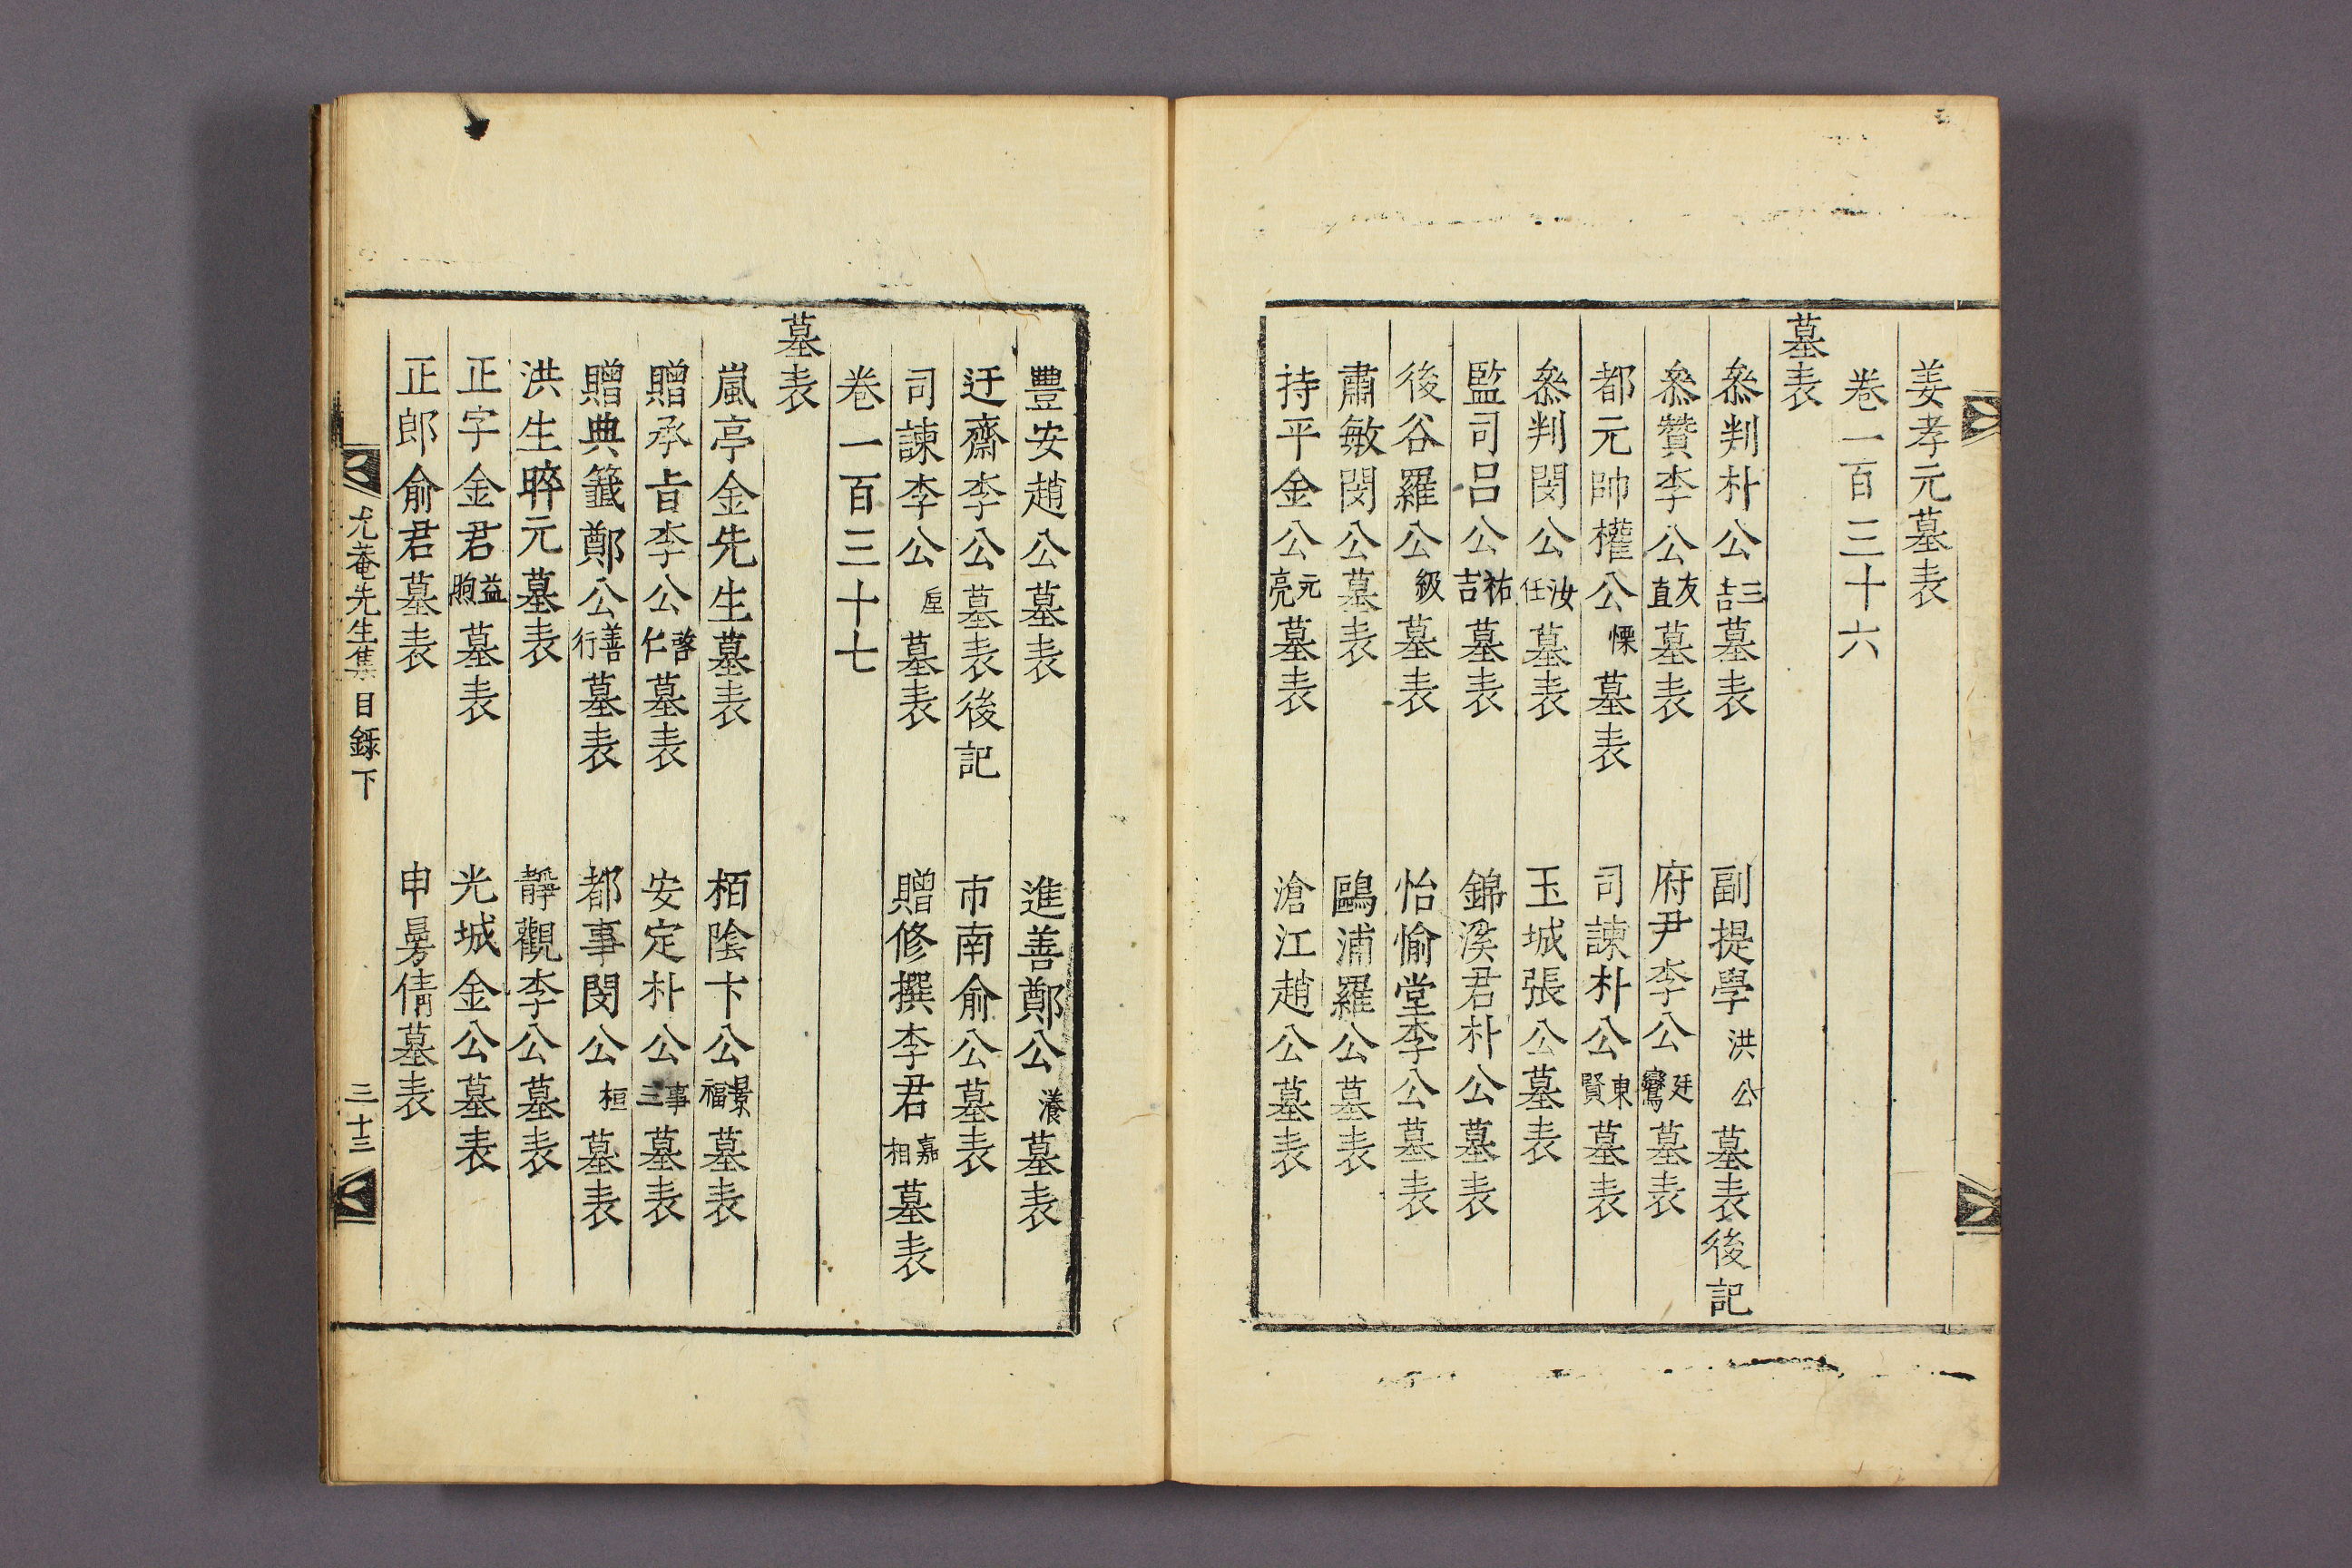 姜孝元墓表
卷一百三十六
墓表
叅判朴公三吉墓表 副提學洪公墓表後記
叅贊李公友直墓表 府尹李公廷鸞墓表
都元帥權公慄墓表 司諫朴公東賢墓表
叅判閔公汝任墓表 玉城張公墓表
監司呂公祐吉墓表 錦溪君朴公墓表
後谷羅公級墓表 怡愉堂李公墓表
肅敏閔公墓表 鷗浦羅公墓表
持平金公元亮墓表 滄江趙公墓表
豐安趙公墓表 進善鄭公瀁墓表
迂齋李公墓表後記 市南兪公墓表
司諫李公垕墓表 贈修撰李君嘉相墓表
卷一百三十七
墓表
嵐亭金先生墓表 栢陰卞公景福墓表
贈承旨李公啓仁墓表 安定朴公事三墓表
贈典籤鄭公善行墓表 都事閔公桓墓表
洪生晬元墓表 靜觀李公墓表
正字金君益煦墓表 光城金公墓表
正郎兪君墓表 申昜倩墓表
尤菴先生集 目錄下 三十三